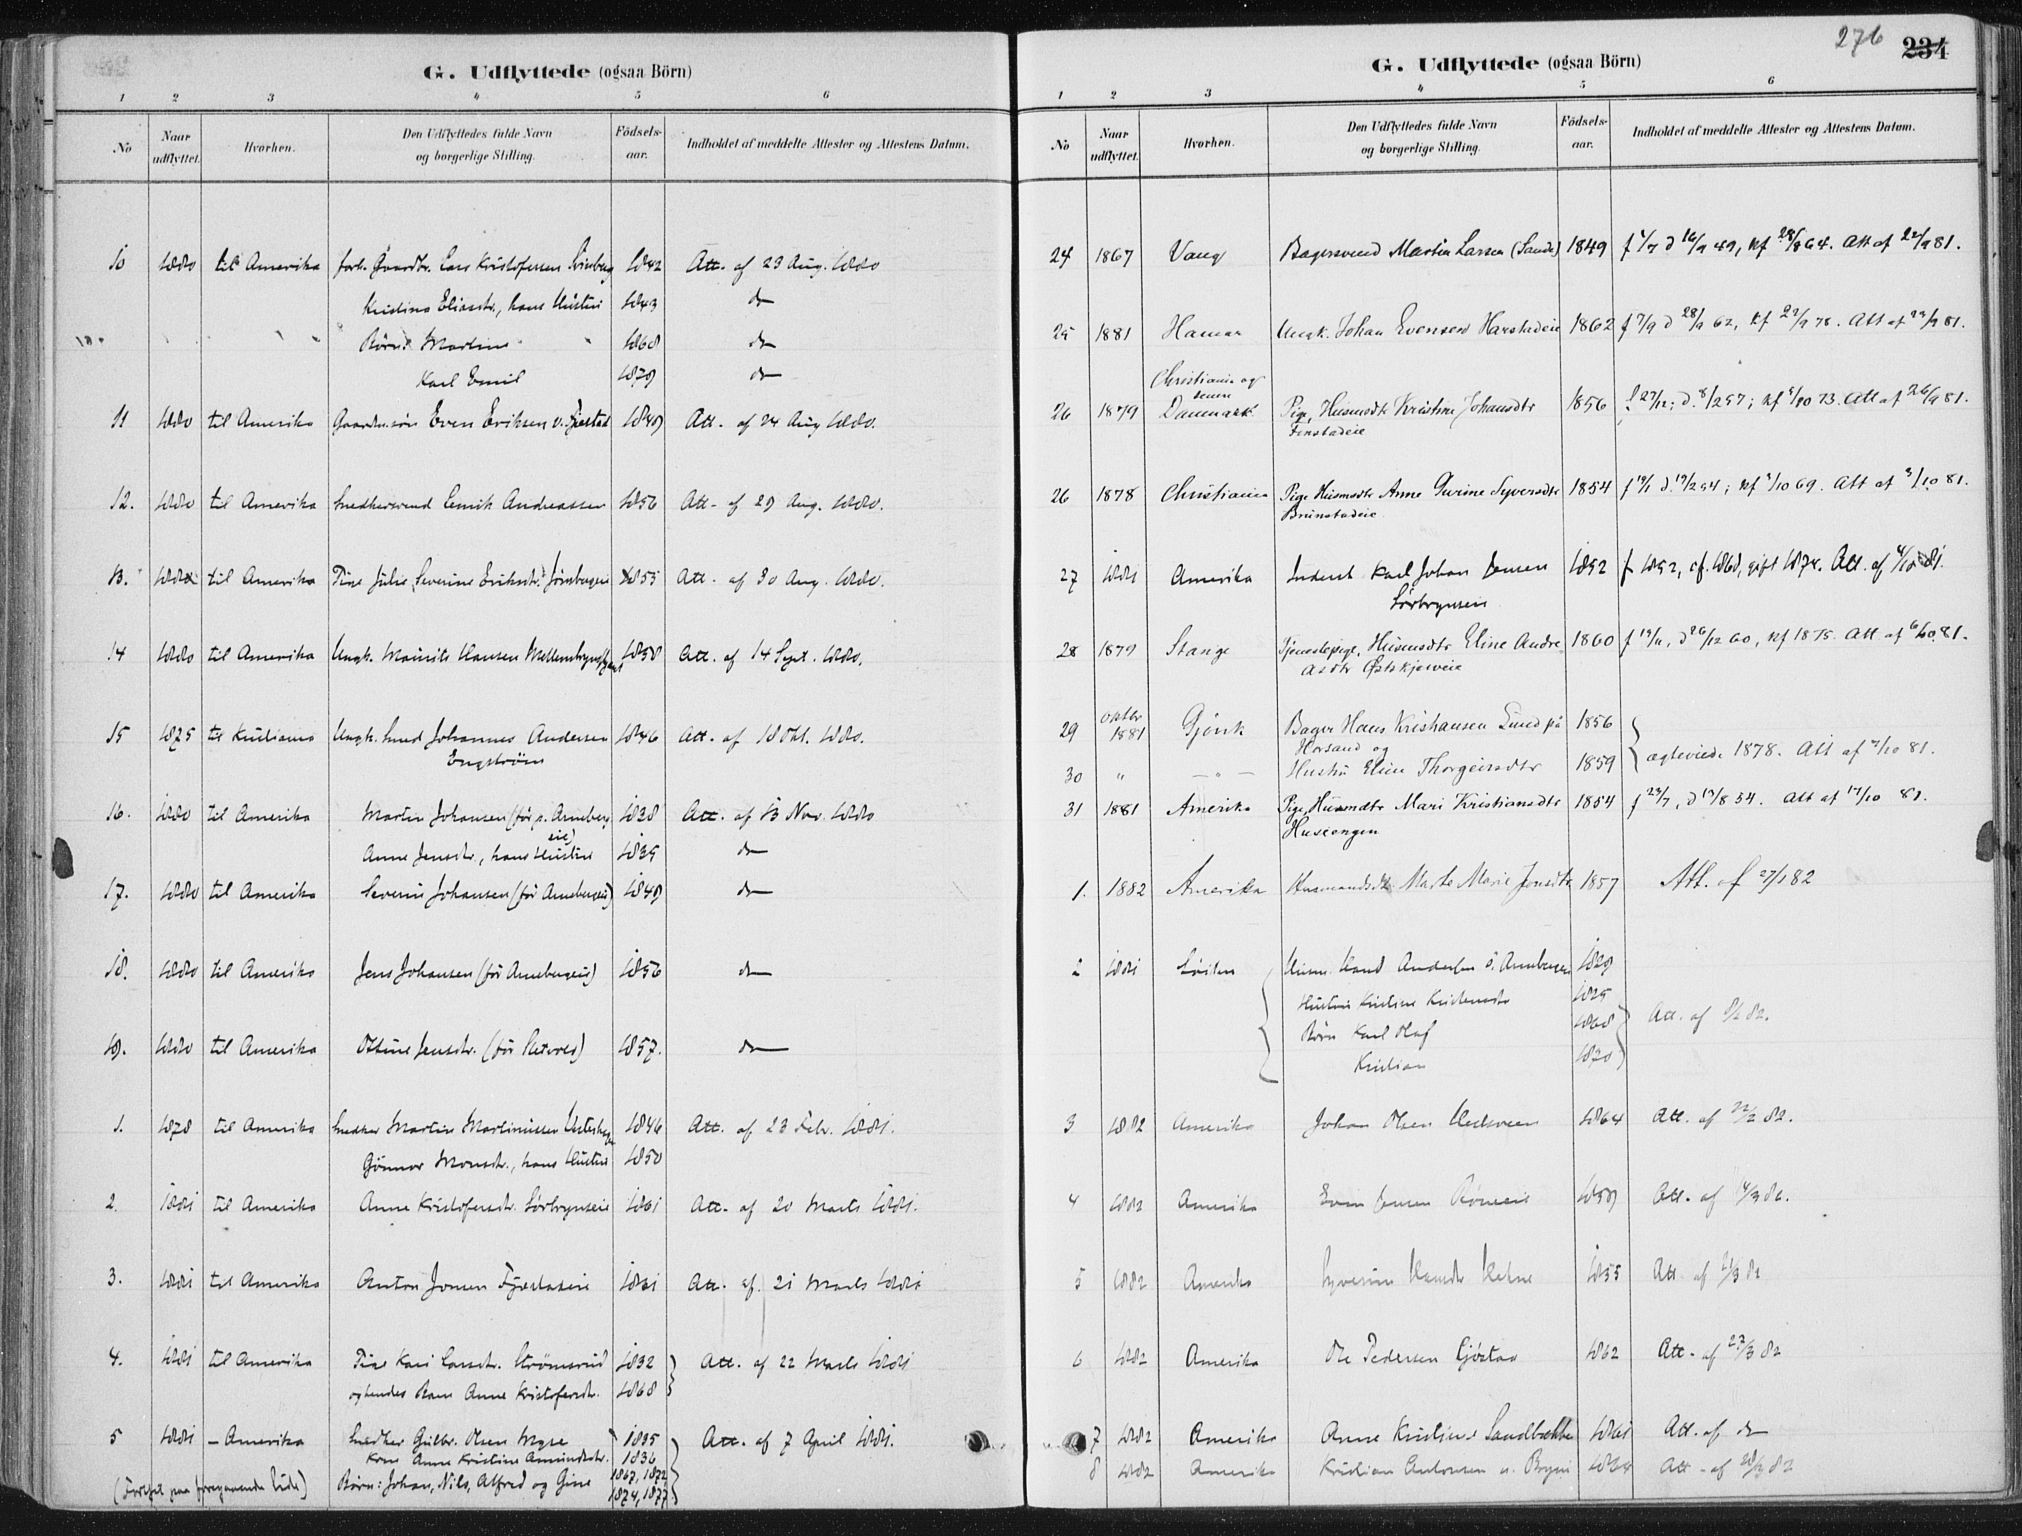 G. Udflyttede (ogsaa Börn)
1 2 3 4 5 6
No
Naar udflyttet.
Hvorhen.
Den Udflyttedes fulde Navn og borgerlige Stilling.
Födsels-aar.
Indholdet af meddelte Attester og Attestens Datum.
10 1880 til Amerika forh. Gaardbr. Lars Kristofersen 1842 Att. af 23 Aug. 1880
Kristine Eliasdtr., hans Hustru 1843 do
Börn: Martine 1868 do
Karl Emil 1879 do
11 1880 til Amerika Gaardm.sön Even Eriksen 1849 Att. af 24 Aug 1880.
12. 1880 til Amerika Snedkersvend Andreassen 1856 Att. af 29 Aug. 1880.
13. 1880 til Amerika Pige Julie Severine Eriksdtr. 1855 Att. af 30 Aug. 1880.
14 1880 til Amerika Ungk. Hansen 1858 Att. af 14 Sept. 1880.
15 1875 til Kristiania Ungk. Smed Johannes Andersen 1846 Att. af 18 Okt. 1880.
Engström
16. 1880 til Amerika Martin Johansen (för p. Arneberg 1838 Att. af 13 Nov. 1880
eie)
Anne Jensdtr., hans Hustru 1835 do
17. 1880 til Amerika Severin Johansen (för Arnebergeie) 1849 do
18. 1880 til Amerika Jens Johansen (för Arnebergeie) 1856 do
19. 1880 til Amerika Jensdtr. (för 1857. do
1. 1878 til Amerika Snedker Martin Martinussen 1846 Att. af 23 Febr. 1881.
Gönnor Monsdtr., hans Hustru 1850
2. 1881 til Amerika Anne Kristofersdtr. Sörbryneie 1861 Att. af 20 Marts 1881.
3. 1881 til Amerika Anton Jonsen 1861 Att. af 21 Marts 1881
4. 1881 til Amerika Pige Kari Larsdtr. Strömsrud 1832 Att. af 22 Marts 1881
og hendes Barn Anne Kristofersdtr. 1868
5 1881 - Amerika Snedker Gulbr. Olsen Myre 1835 Att. af 7 April 1881.
Kone Anne Kristine Amundsdtr. 1836
Börn: Johan, Nils, Alfred og Gine 1867, 1872
1874, 1877
(Fortsat paa foregaaende Side)
276 234
G. Udflyttede (ogsaa Börn)
1 2 3 4 5 6
No
Naar udflyttet.
Hvorhen.
Den Udflyttedes fulde Navn og borgerlige Stilling.
Födsels-aar.
Indholdet af meddelte Attester og Attestens Datum.
24 1867 Vang Bagersvend Martin Larsen (Sande) 1849 f 1/7 d 16/9 49, kf 64. Att af 22/9 81.
25 1881 Hamar Ungk. Johan Evensen Harstadeie 1862 f 7/9 d 28/9 62, kf 22/9 78. Att af 81.
Christiania og
senere
26 1879 Danmark Pige, Husmdtr Kristine Johansdtr 1856 f 27/12; d. 8/2 57; kf 5/10 73. Att af 26/9 81.
Finstadeie
26 1878 Christiania Pige Husmdtr Anne Gurine Syversdtr 1854 f d. 19/2 54; kf 3/10 69. Att af 3/10 81.
Brunstadeie
27 1881 Amerika Inderst Karl Johan Jensen 1852 f 1852, cf. 1868, gift 1874. Att. af 4/10 81.
Sörbryneie
28 1879 Stange Tjenestepige, Husmdtr Eline Andre 1860 f 19/11, d 26/12 60, kf 1875. Att af 6/10 81.
asdtr Østskjøreie
29 oktbr 1881 Gjøvik Bager Hans Kristiansen Lund på 1856
Horsand og
30 " — " — Hustru Eline Thorgeirsdtr 1859 ægteviede 1878. Att af 7/10 81.
31 1881 Amerika Pige, Husmdtr Mari Kristiansdtr 1854 f 23/7, d 13/8 54. Att af 17/10 81.
Huseengen
1. 1882 Amerika Husmandsdtr Marte Marie Jensdtr 1857 Att. af 27/1 82
2 1881 Löiten Husm. Andersen Arnebergeie 1829
Hustru Kristine 1825
Börn Karl Olaf 1868 Att. af 82.
Kristian 1870
3 1882 Amerika Johan Olsen 1864 Att. af 22/2 82.
4 1882 Amerika Even Jensen 1859 Att. af 82.
5 1882 Amerika Syverine 1855 Att. af 21/3 82
6 1882 Amerika Ole Pedersen 1862 Att. af 27/3 82
7 1882 Amerika Anne Kristine Sandbakke 1861 Att. af do
8 1882 Amerika Kristian Antonsen 1864 Att. af 82